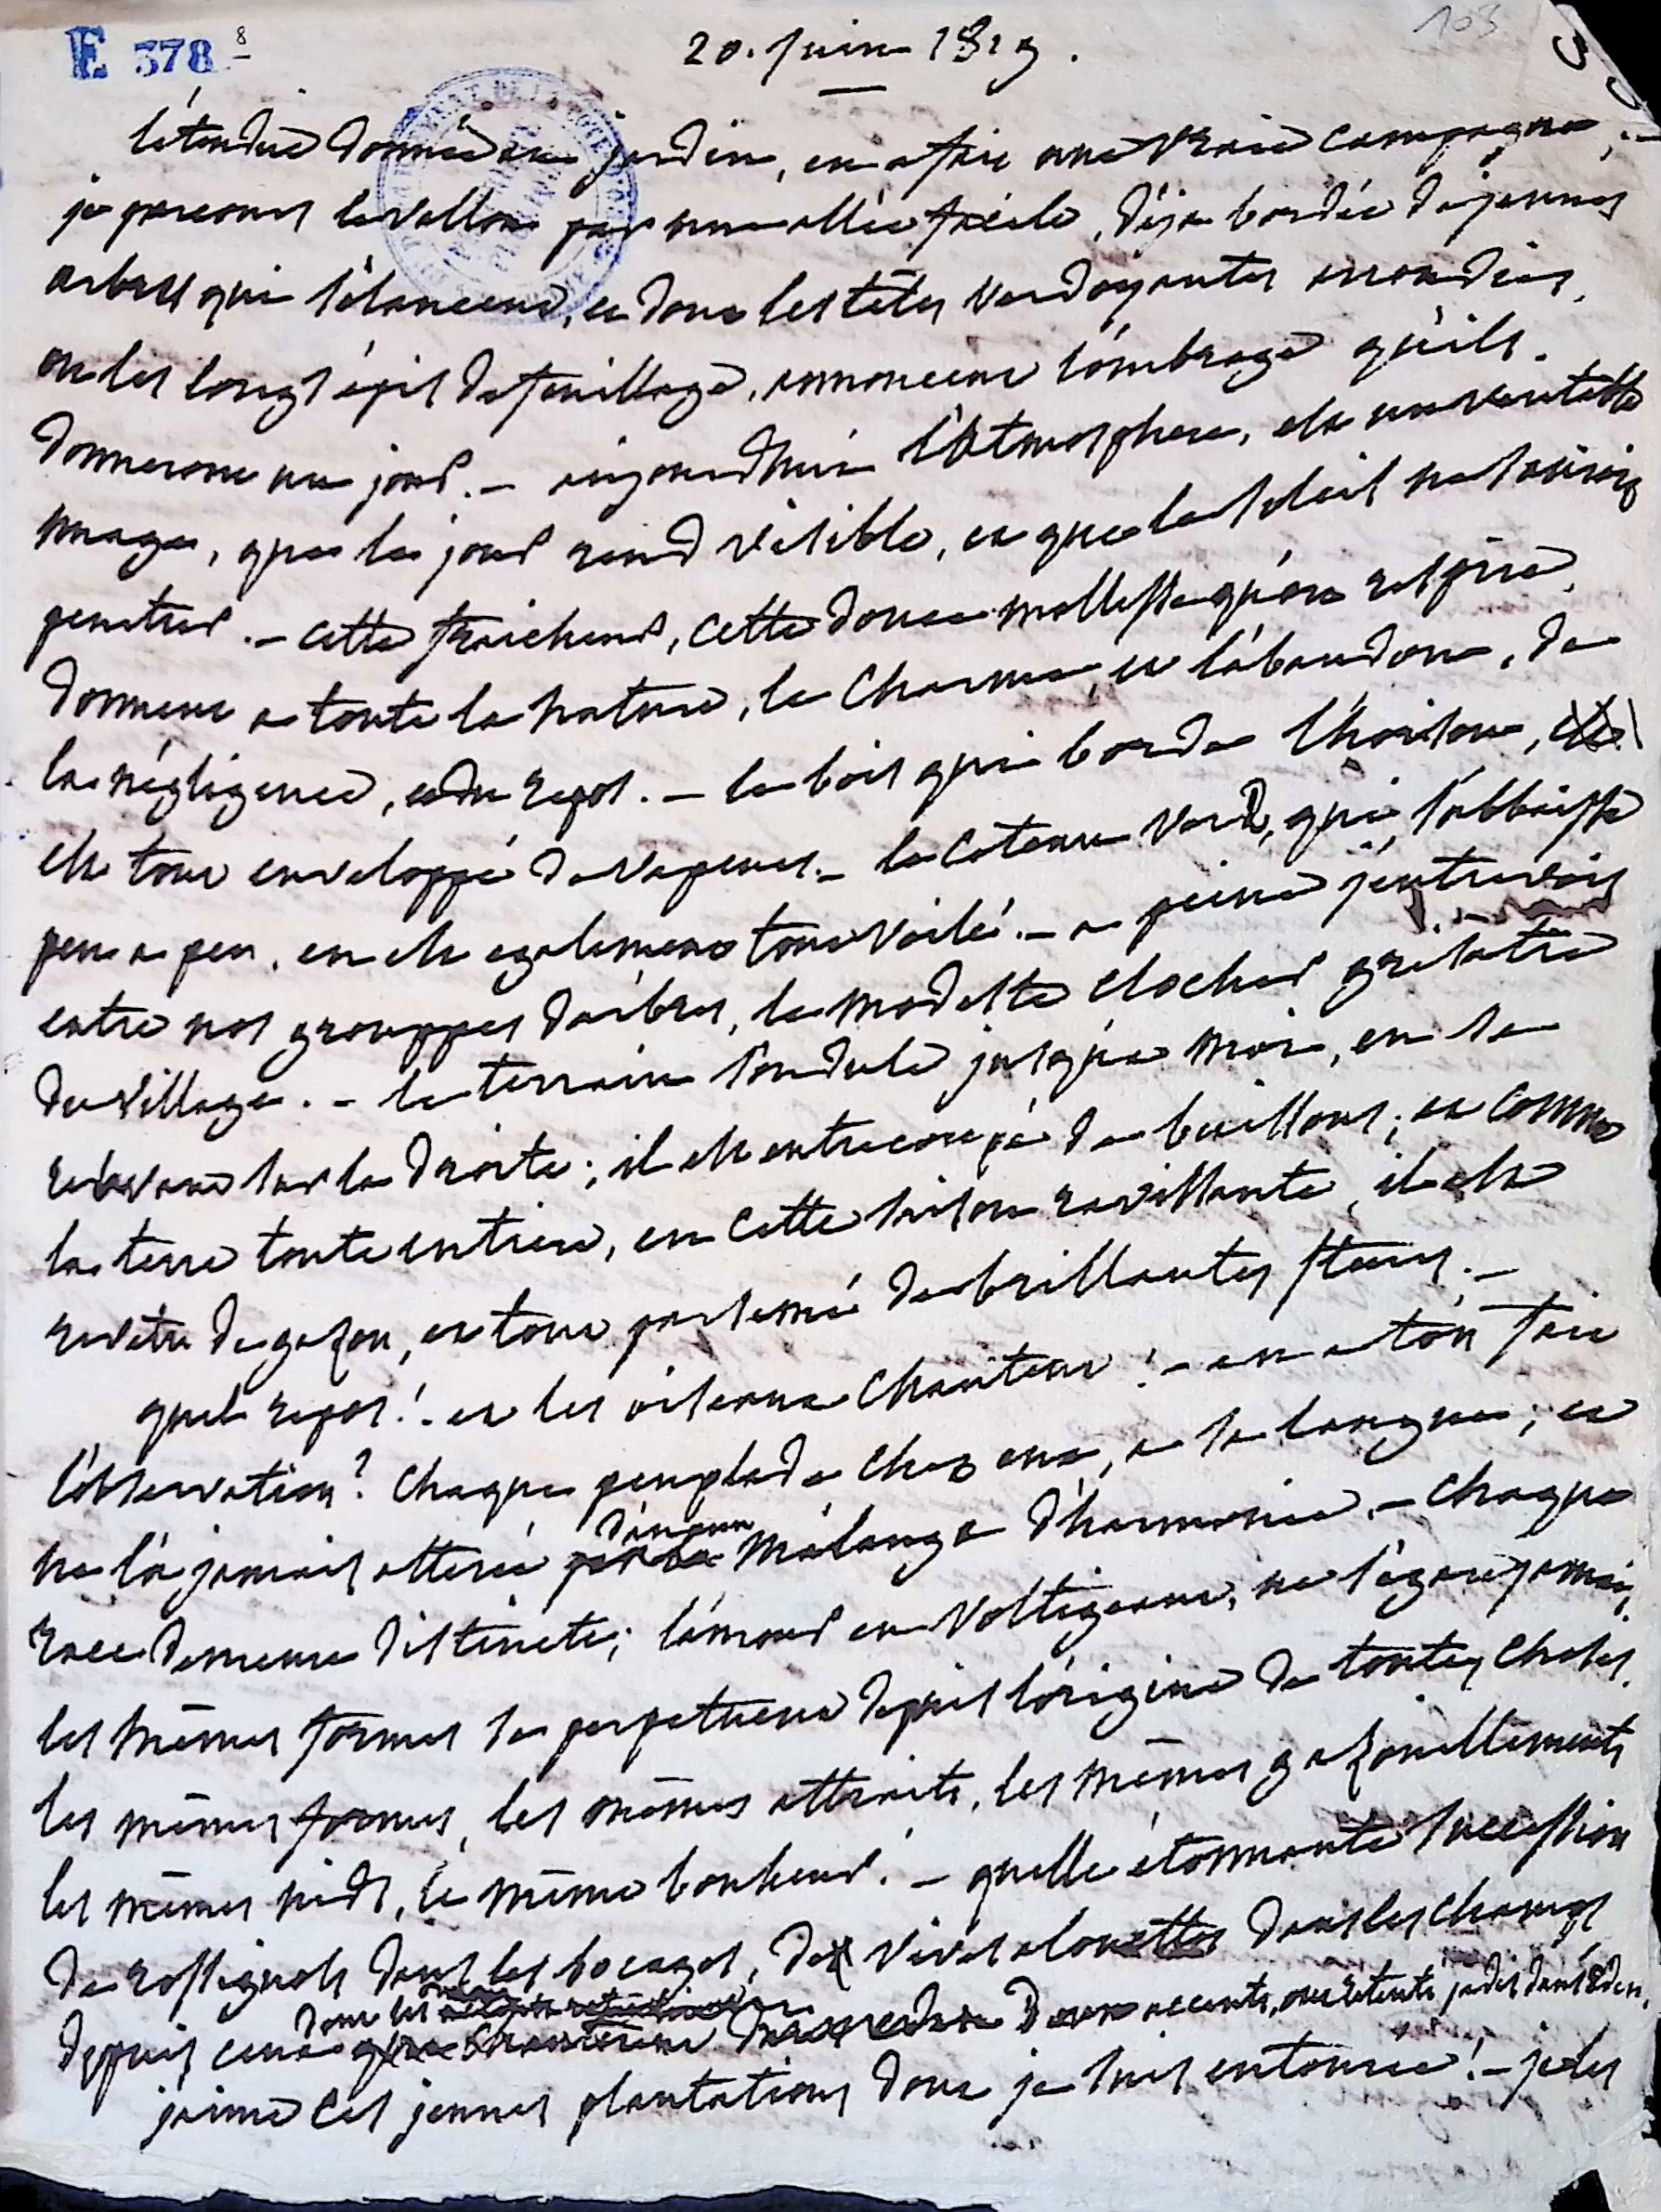 E 378 8
103
20. Juin 1819.
l'étendue donnée au jardin, en a fait une vraie campagne ; -
je parcours le vallon par une allée facile, déja bordée de jeunes
arbres qui s'élancent, et dont les têtes verdoyantes arrondies,
ou les longs épis de feuillage, annoncent l'ombrage qu'ils
donneront un jour. - aujourdhui l'atmosphere, est un veritable
nuage, que le jour rend visible, et que le soleil ne sauroit
penetrer. - cette fraicheur, cette douce mollesse qu'on respire,
donnent a toute la nature, le charme, et l'abandon, de
la négligence, et du repos. - le bois qui borde l'horison,
est tout enveloppé de vapeurs. - le coteau verd, qui s'abbaisse
peu a peu, en est egalement tout voilé. - a peine j'entrevois
entre nos grouppes d'arbres, le modeste clocher grisatre
du village. - le terrain s'ondule jusqu'a moi, en se
relevant sur la droite ; il est entrecoupé de buissons ; et comme
la terre toute entiere, en cette saison ravissante, il est
revetu de gazon, et tout parsemé de brillantes fleurs. -
quel repos ! et les oiseaux chantent ! - en a t'on fait
l'observation ? chaque peuplade chez eux, a sa langue ; et
ne l'a jamais alteré d'aucun mélange d'harmonie. - chaque
race demeure distincte ; l'amour en voltigeant, ne s'égare jamais,
les mêmes formes se perpetuent depuis l'origine de toutes choses,
les mêmes formes, les mêmes attraits, les mêmes gazouillements
les mêmes nids, le même bonheur. - quelle étonnante succession
de rossignols dans les bocages, de vives alouettes dans les champs,
depuis ceux dont les accents, ont retenti jadis dans Eden.
j'aime ces jeunes plantations dont je suis entourée ! - je les